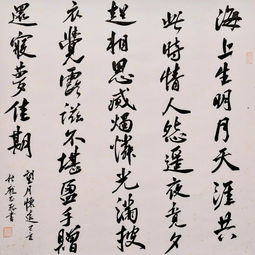 海上生明月天涯共
此时情人怨遥夜竟夕
起相思滅燭憐光滿披
衣覺露滋不堪盈手贈
還寢夢佳期
望月懷遠